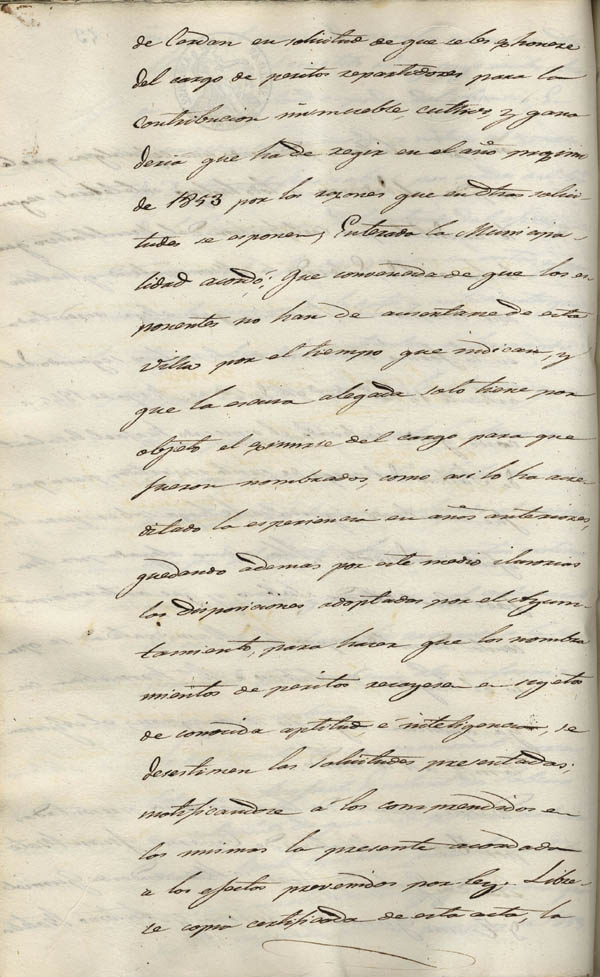 de Cerdan en solicitud de que se les exhonere
del cargo de peritos repartidores para la
contribucion inmueble, cultivo, y gana
deria que ha de regir en el año proximo
de 1853 por las razones que en otra solici-
tudes se esponen; Enterada la Municipa-
lidad acordó; Que convencida de que los es
ponentes no han de ausentarse de esta
villa por el tiempo que indican, y
que la escusa alegada solo tiene por
objeto el eximirse del cargo para que
fueron nombrados, como asi lo ha acre
ditado la esperiencia en años anteriores,
quedando ademas por este medio ilusorias
las disposiciones adoptadas por el Ayun-
tamiento, para hacer que los nombra
mientos de peritos recayesen en sujetos
de conocida aptitud é inteligencia, se
desestimen las solicitudes presentadas;
notificandose á los comprendidos en
las mismas la presente acordada
a los efectos prevenidos por ley. Libre-
se copia certificada de esta acta, la